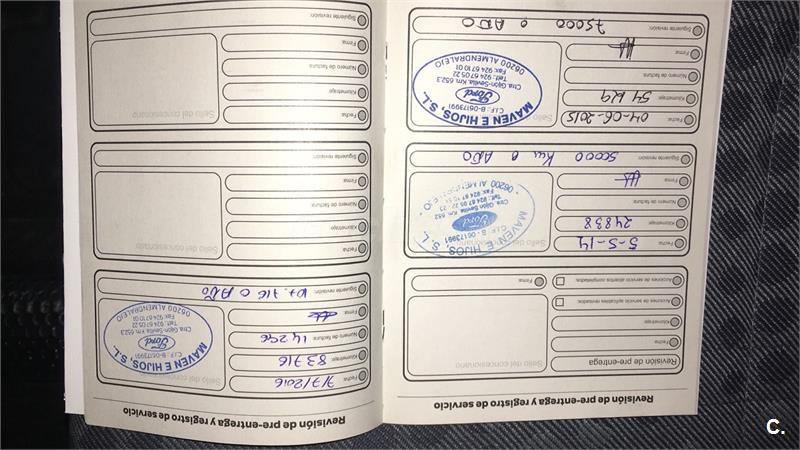 Revisión de pre-entrega y registro de servicio
Revisión de pre-entrega
Sello del concesionario
Fecha
Kilometraje
Acciones de servicio revisadas:
Acciones de servicio abiertos completadas:
Firma
Fecha 5-5-14
Kilometraje 24838
Número de factura
Firma
Siguiente revisión: 50000 Km o AÑO
MAVEN E HIJOS, S.L.
C.I.F.: B-06173991
Ford
Ctra. Gijón-Sevilla, Km. 652
06200 ALMENDRALEJO
Fecha 04-06-2015
Kilometraje
Número de factura
Firma
Siguiente revisión: 75000 o AÑO
Sello
MAVEN E HIJOS, S.L.
C.I.F.: B-06173991
Ford
Ctra. Gijón-Sevilla, Km. 652,3
Telf.: 924 67 05 22
Fax 924 67 10 01
06200 ALMENDRALEJO
Revisión de pre-entrega y registro de servicio
Fecha 7/7/2016
Kilometraje 83716
Número de factura
Firma
Siguiente revisión: 107.716 o AÑO
Sello del concesionario
MAVEN E HIJOS, S.L.
C.I.F.: B-06173991
Ford
Ctra. Gijón-Sevilla, Km. 652,3
Telf.: 924 67 05 22
Fax 924 67 10 01
06200 ALMENDRALEJO
Fecha
Kilometraje
Número de factura
Firma
Siguiente revisión:
Sello del concesionario
Fecha
Kilometraje
Número de factura
Firma
Siguiente revisión:
Sello del concesionario
C.